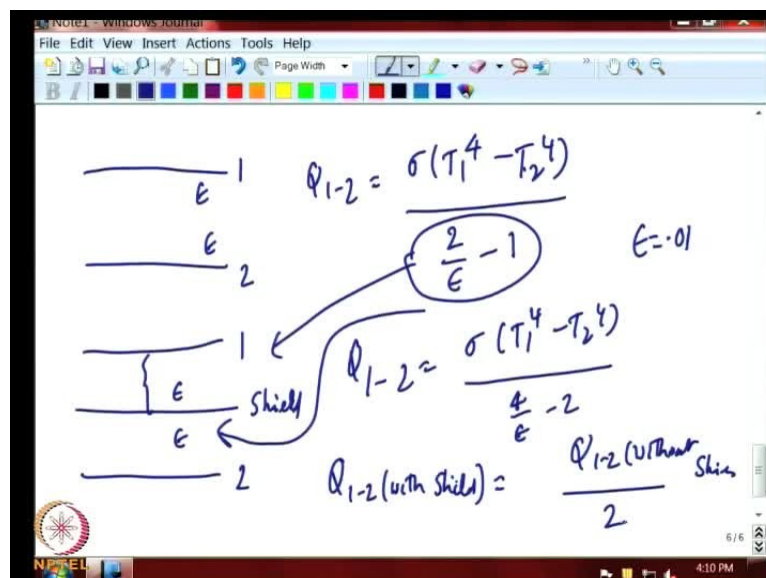 Note1 - Windows Journal
File Edit View Insert Actions Tools Help
Page Width
B I
1
ϵ
Q₁₋₂ = σ(T₁⁴ - T₂⁴) / (2/ϵ - 1)
ϵ
2
ϵ = .01
1
Q₁₋₂ = σ(T₁⁴ - T₂⁴) / (4/ϵ - 2)
ϵ
Shield
ϵ
2
Q₁₋₂ (with Shield) = Q₁₋₂ (without Shie / 2
6/6
NPTEL
4:10 PM